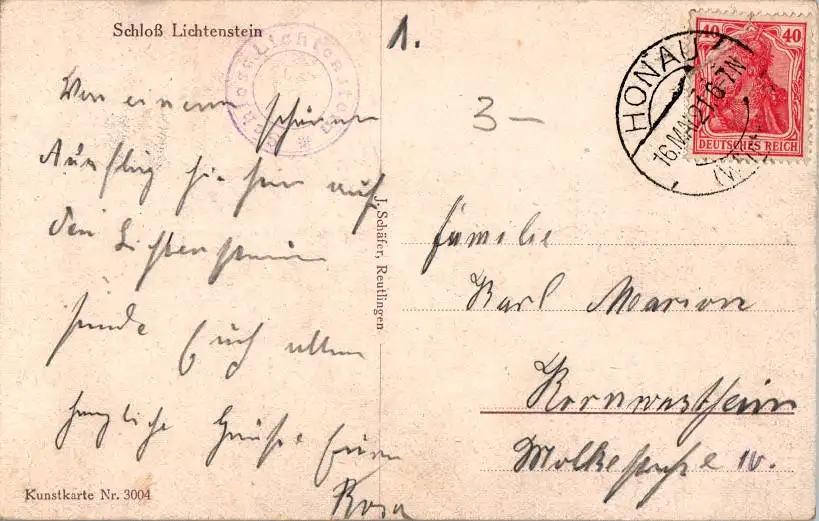 Schloß Lichtenstein
Schloss Lichtenstein
1.
3-
HONAU
16.MAI.21.6-7N
40 40
DEUTSCHES REICH
Von einem schönen
Ausflug hierher auf
den Lichtenstein
sende Euch allen
herzliche Grüße Eure
Rosa
Familie
Karl Marion
Kornwestheim
Molkestraße 10.
J. Schäfer, Reutlingen
Kunstkarte Nr. 3004